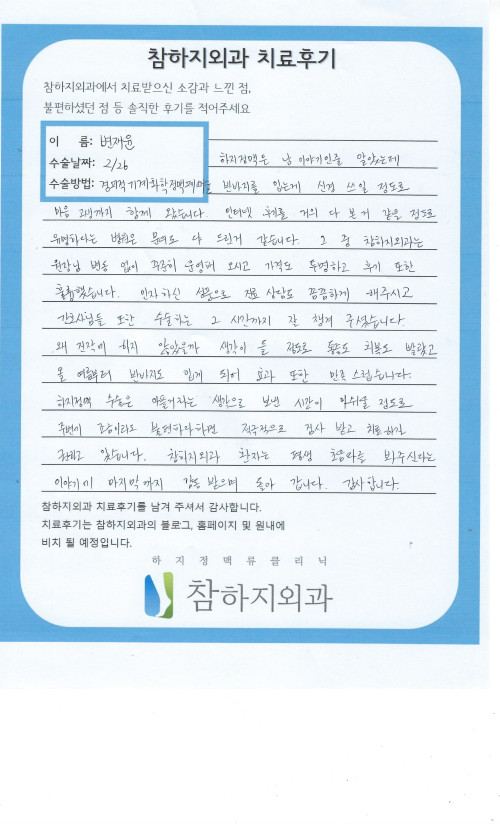 참하지외과 치료후기
참하지외과에서 치료받으신 소감과 느낀 점,
불편하셨던 점 등 솔직한 후기를 적어주세요
이 름: 변재윤
수술날짜: 2/26
수술방법: 경피적 기계화학 정맥폐쇄술
하지정맥은 남 이야기인줄 알았는데
반바지를 입는게 신경 쓰일 정도로
마음 고생까지 함께 왔습니다. 인터넷 후기를 거의 다 본 거 같을 정도로
유명하다는 병원은 문의도 다 드린거 같습니다. 그 중 참하지외과는
원장님 변동 없이 꾸준히 운영해 오시고 가격도 투명하고 후기 또한
훌륭했습니다. 인자하신 성품으로 진료 상담도 꼼꼼하게 해주시고
간호사님들 또한 수술하는 그 시간까지 잘 챙겨 주셨습니다.
왜 진작에 하지 않았을까 생각이 들 정도로 통증도 회복도 빨랐고
올 여름부터 반바지도 입게 되어 효과 또한 만족스럽습니다.
하지정맥 수술은 아플거라는 생각으로 보낸 시간이 아쉬울 정도로
주변에 조금이라도 불편하다하면 적극적으로 검사 받고 치료하길
권하고 있습니다. 참하지외과 환자는 평생 초음파를 봐주신다는
이야기에 마지막까지 감동 받으며 돌아 갑니다. 감사합니다.
참하지외과 치료후기를 남겨 주셔서 감사합니다.
치료후기는 참하지외과의 블로그, 홈페이지 및 원내에
비치 될 예정입니다.
하지정맥류클리닉
참하지외과